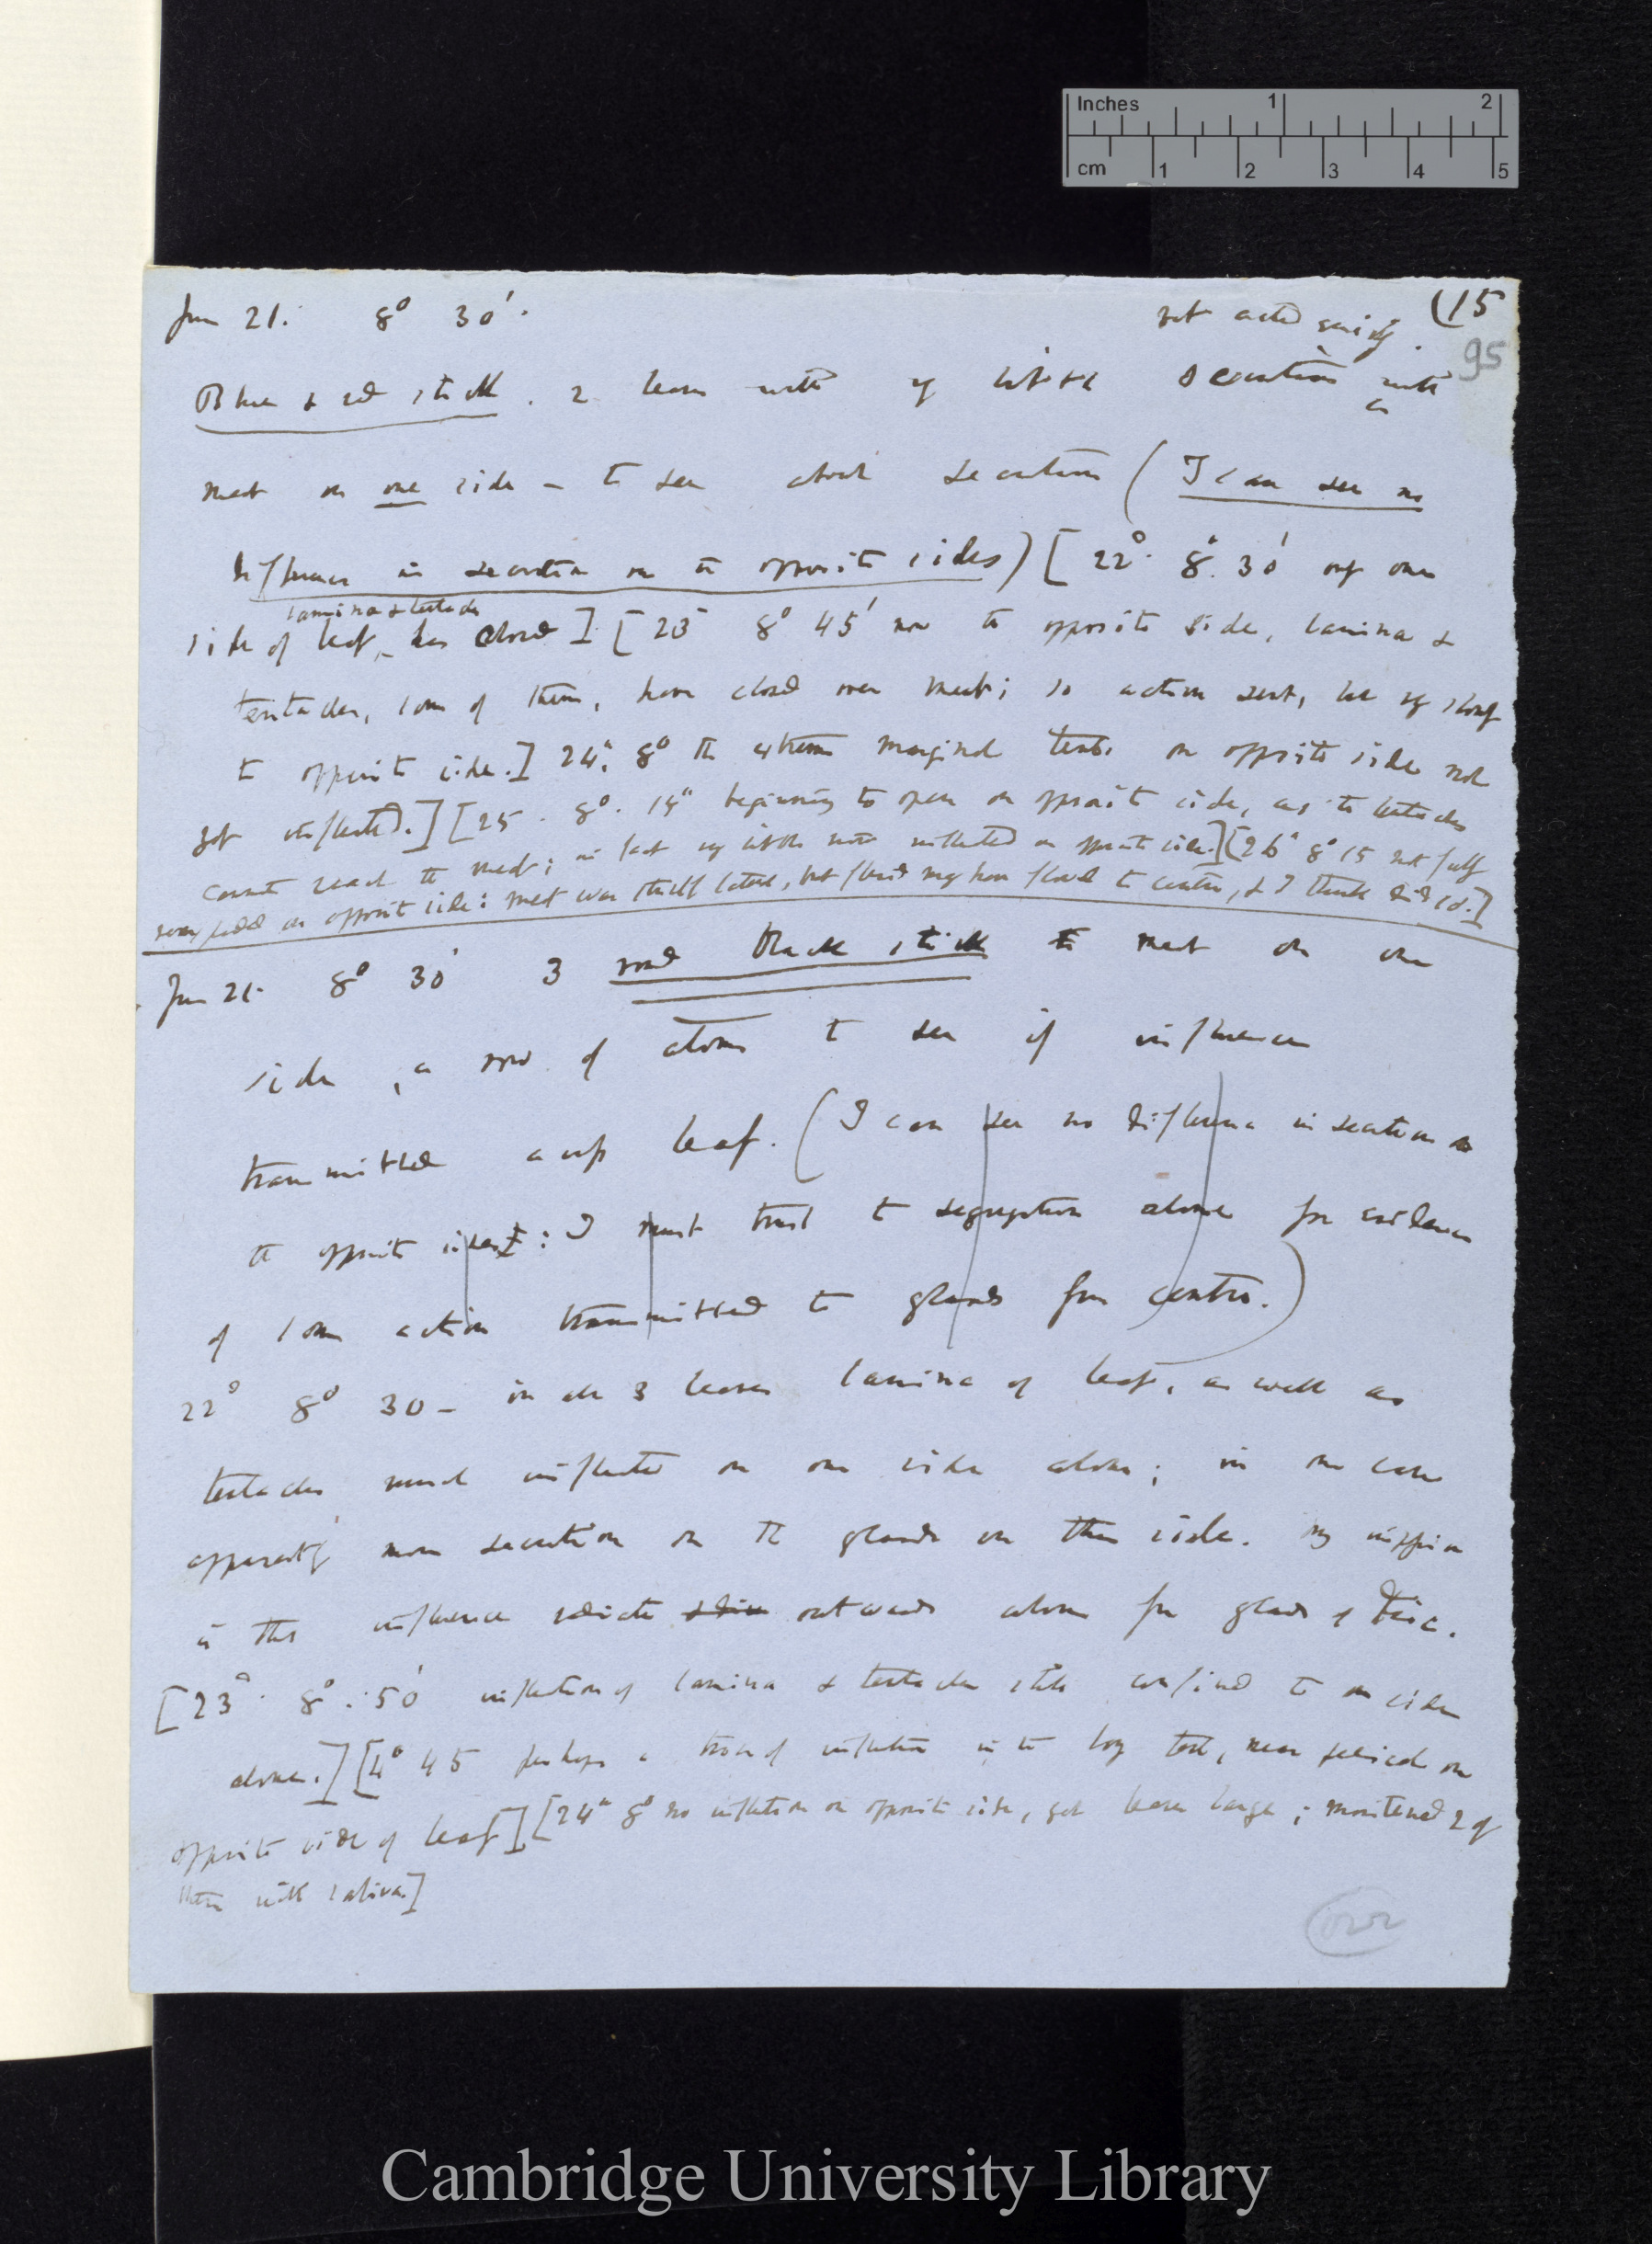 Inches 1 2
cm 1 2 3 4 5
June 21. 8° 30'. not acted (15
95
Blue & red stick. 2 leaves with vy little secretion with
meat on one side – to see about secretion (I can see no
difference in secretion on the opposite sides) [22° 8° 30' only one
lamina & tentacles
side of leaf, has closed] [23 8° 45' now the opposite side, lamina &
tentacles, some of them, have closed over meat; so action sent, but vy slowly
to opposite side.] 24. 8° The extreme marginal tent. on opposite side not
yet inflected.] [25. 8°. 15" beginning to open on opposite side, as the tentacles
cannot reach the meat; in fact vy little now inflected on opposite side.] [26 8° 15 not fully
on opposite side: meat was itself lateral, but fluid may have flowed to centre, & I think did so.]
June 21 8° 30' 3 Black stick meat on one
side, a row of atoms to see if influence
transmitted across leaf. (I can see no difference in secretion on
the opposite sides: I must trust to segregation alone for evidence
of some action transmitted to glands from centre.)
22° 8° 30 – in all 3 leaves lamina of leaf, as well as
tentacles much inflected on one side alone; in one case
apparently more secretion on the glands on this side. My impression
is that influence radiates outwards alone from glands of disc.
[23°. 8°. 50' inflection of lamina & tentacles still confined to one side
alone.] [4° 45 perhaps a trace of inflection in the long tent, near pedicel on
opposite side of leaf] [24 8° no inflection on opposite side, yet leaves large; moistened 2 of
them with saliva.]
over
Cambridge University Library